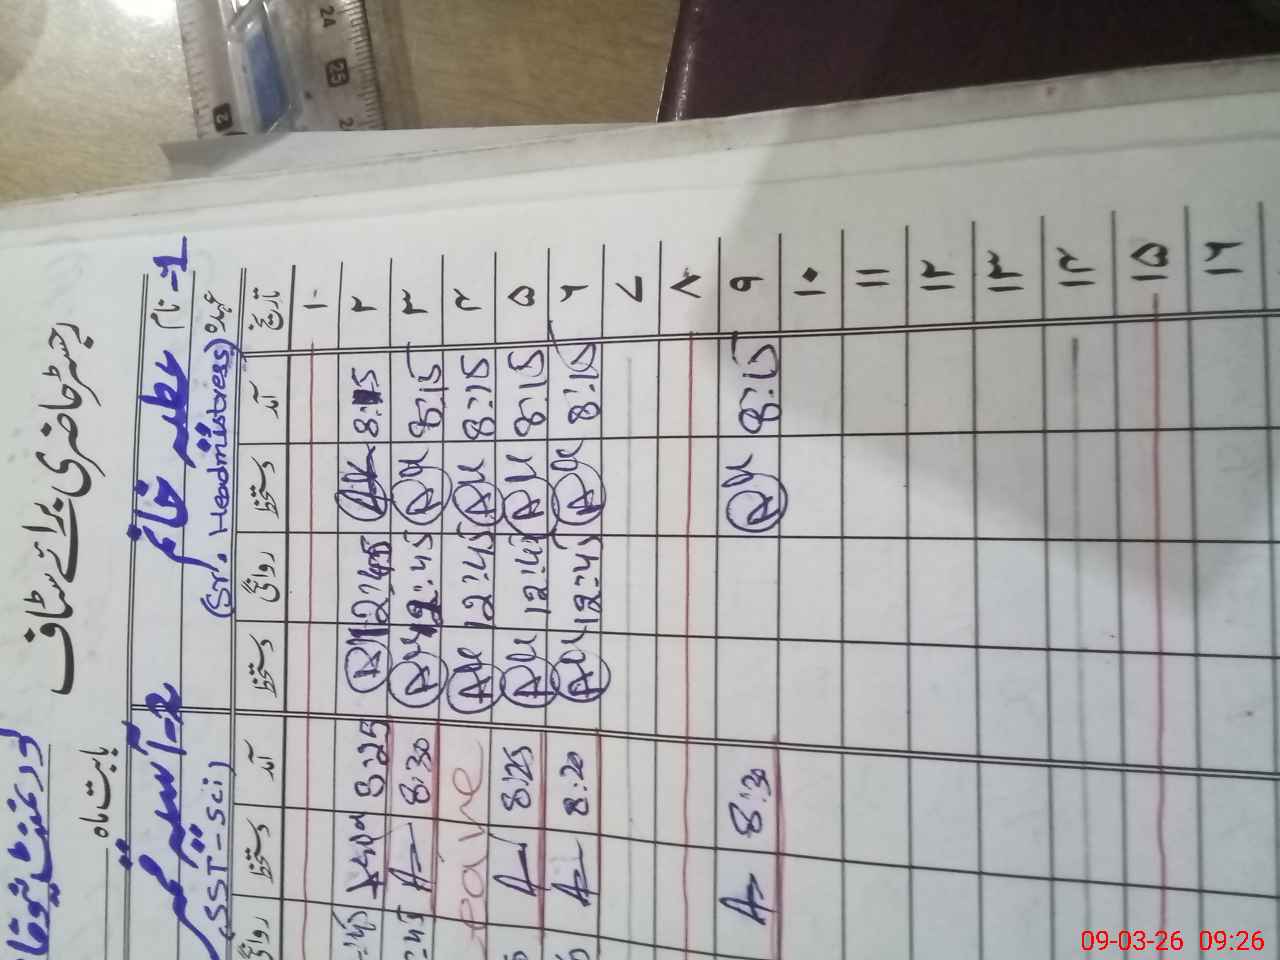 رجسٹر حاضری برائے سٹاف
بابت ماہ
1- نام عطیہ خانم
عہدہ (Sr. Headmistress)
2- آسیہ
(SST-sci)
تاریخ آمد دستخط روانگی دستخط آمد دستخط روانگی
۱
۲ 8:15 12:45 8:25
۳ 8:15 12:45 8:30
۴ 8:15 12:45 Leave
۵ 8:15 12:45 8:25
۶ 8:15 12:45 8:20
۷
۸
۹ 8:15 8:30
۱۰
۱۱
۱۲
۱۳
۱۴
۱۵
۱۶
09-03-26 09:26